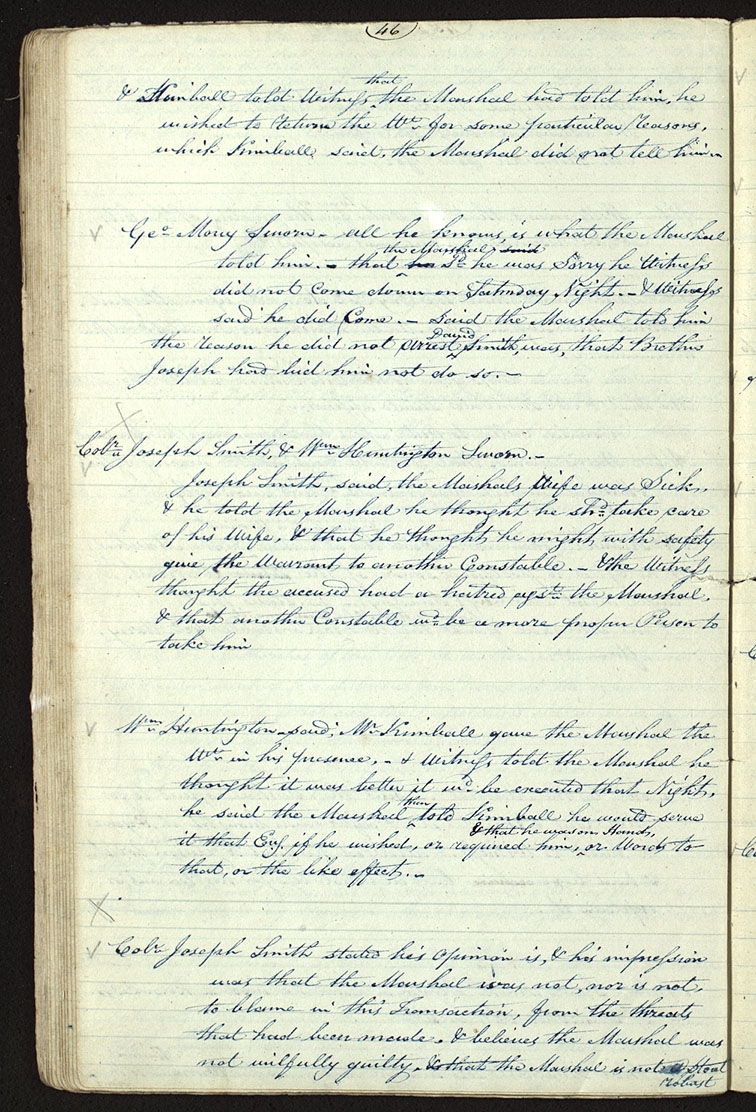 46
& Kimball told Witness that the Marshal had told him, he
wished to return the Wt. for some particular reasons,
which Kimball said, the Marshal did not tell him.
Geo. Mony Sworn - all he knows, is what the Marshal
told him. - that he the Marshal said sd. he was Sorry he Witness
did not come down on Saturday Night. - & Witness
said he did Come. - Said the Marshal told him
the reason he did not arrest David Smith, was, that Brother
Joseph had bid him not do so. -
Joseph Smith, & Wm. Huntington Sworn. -
Joseph Smith, said, the Marshals Wife was Sick,
& he told the Marshal he thought he shd. take care
of his Wife, & that he thought he might, with safety
give the Warrant to another Constable. - & the Witness
thought the accused had a hatred agst. the Marshal,
& that another Constable wd. be a more proper Person to
take him
Wm. Huntington - said, Mr. Kimball gave the Marshal the
Wt. in his presence, - & Witness told the Marshal he
thought it was better it wd. be executed that Night,
he said the Marshal then told Kimball he would serve
it that Evg. if he wished, or required him, & that he was on Hands, or Words to
that, or the like effect. -
Joseph Smith stated his opinion is, & his impression
was that the Marshal was not, nor is not,
to blame in this Transaction, from the threats
that had been made. & believes the Marshal was
not wilfully guilty. & that the Marshal is not a Stout
robust